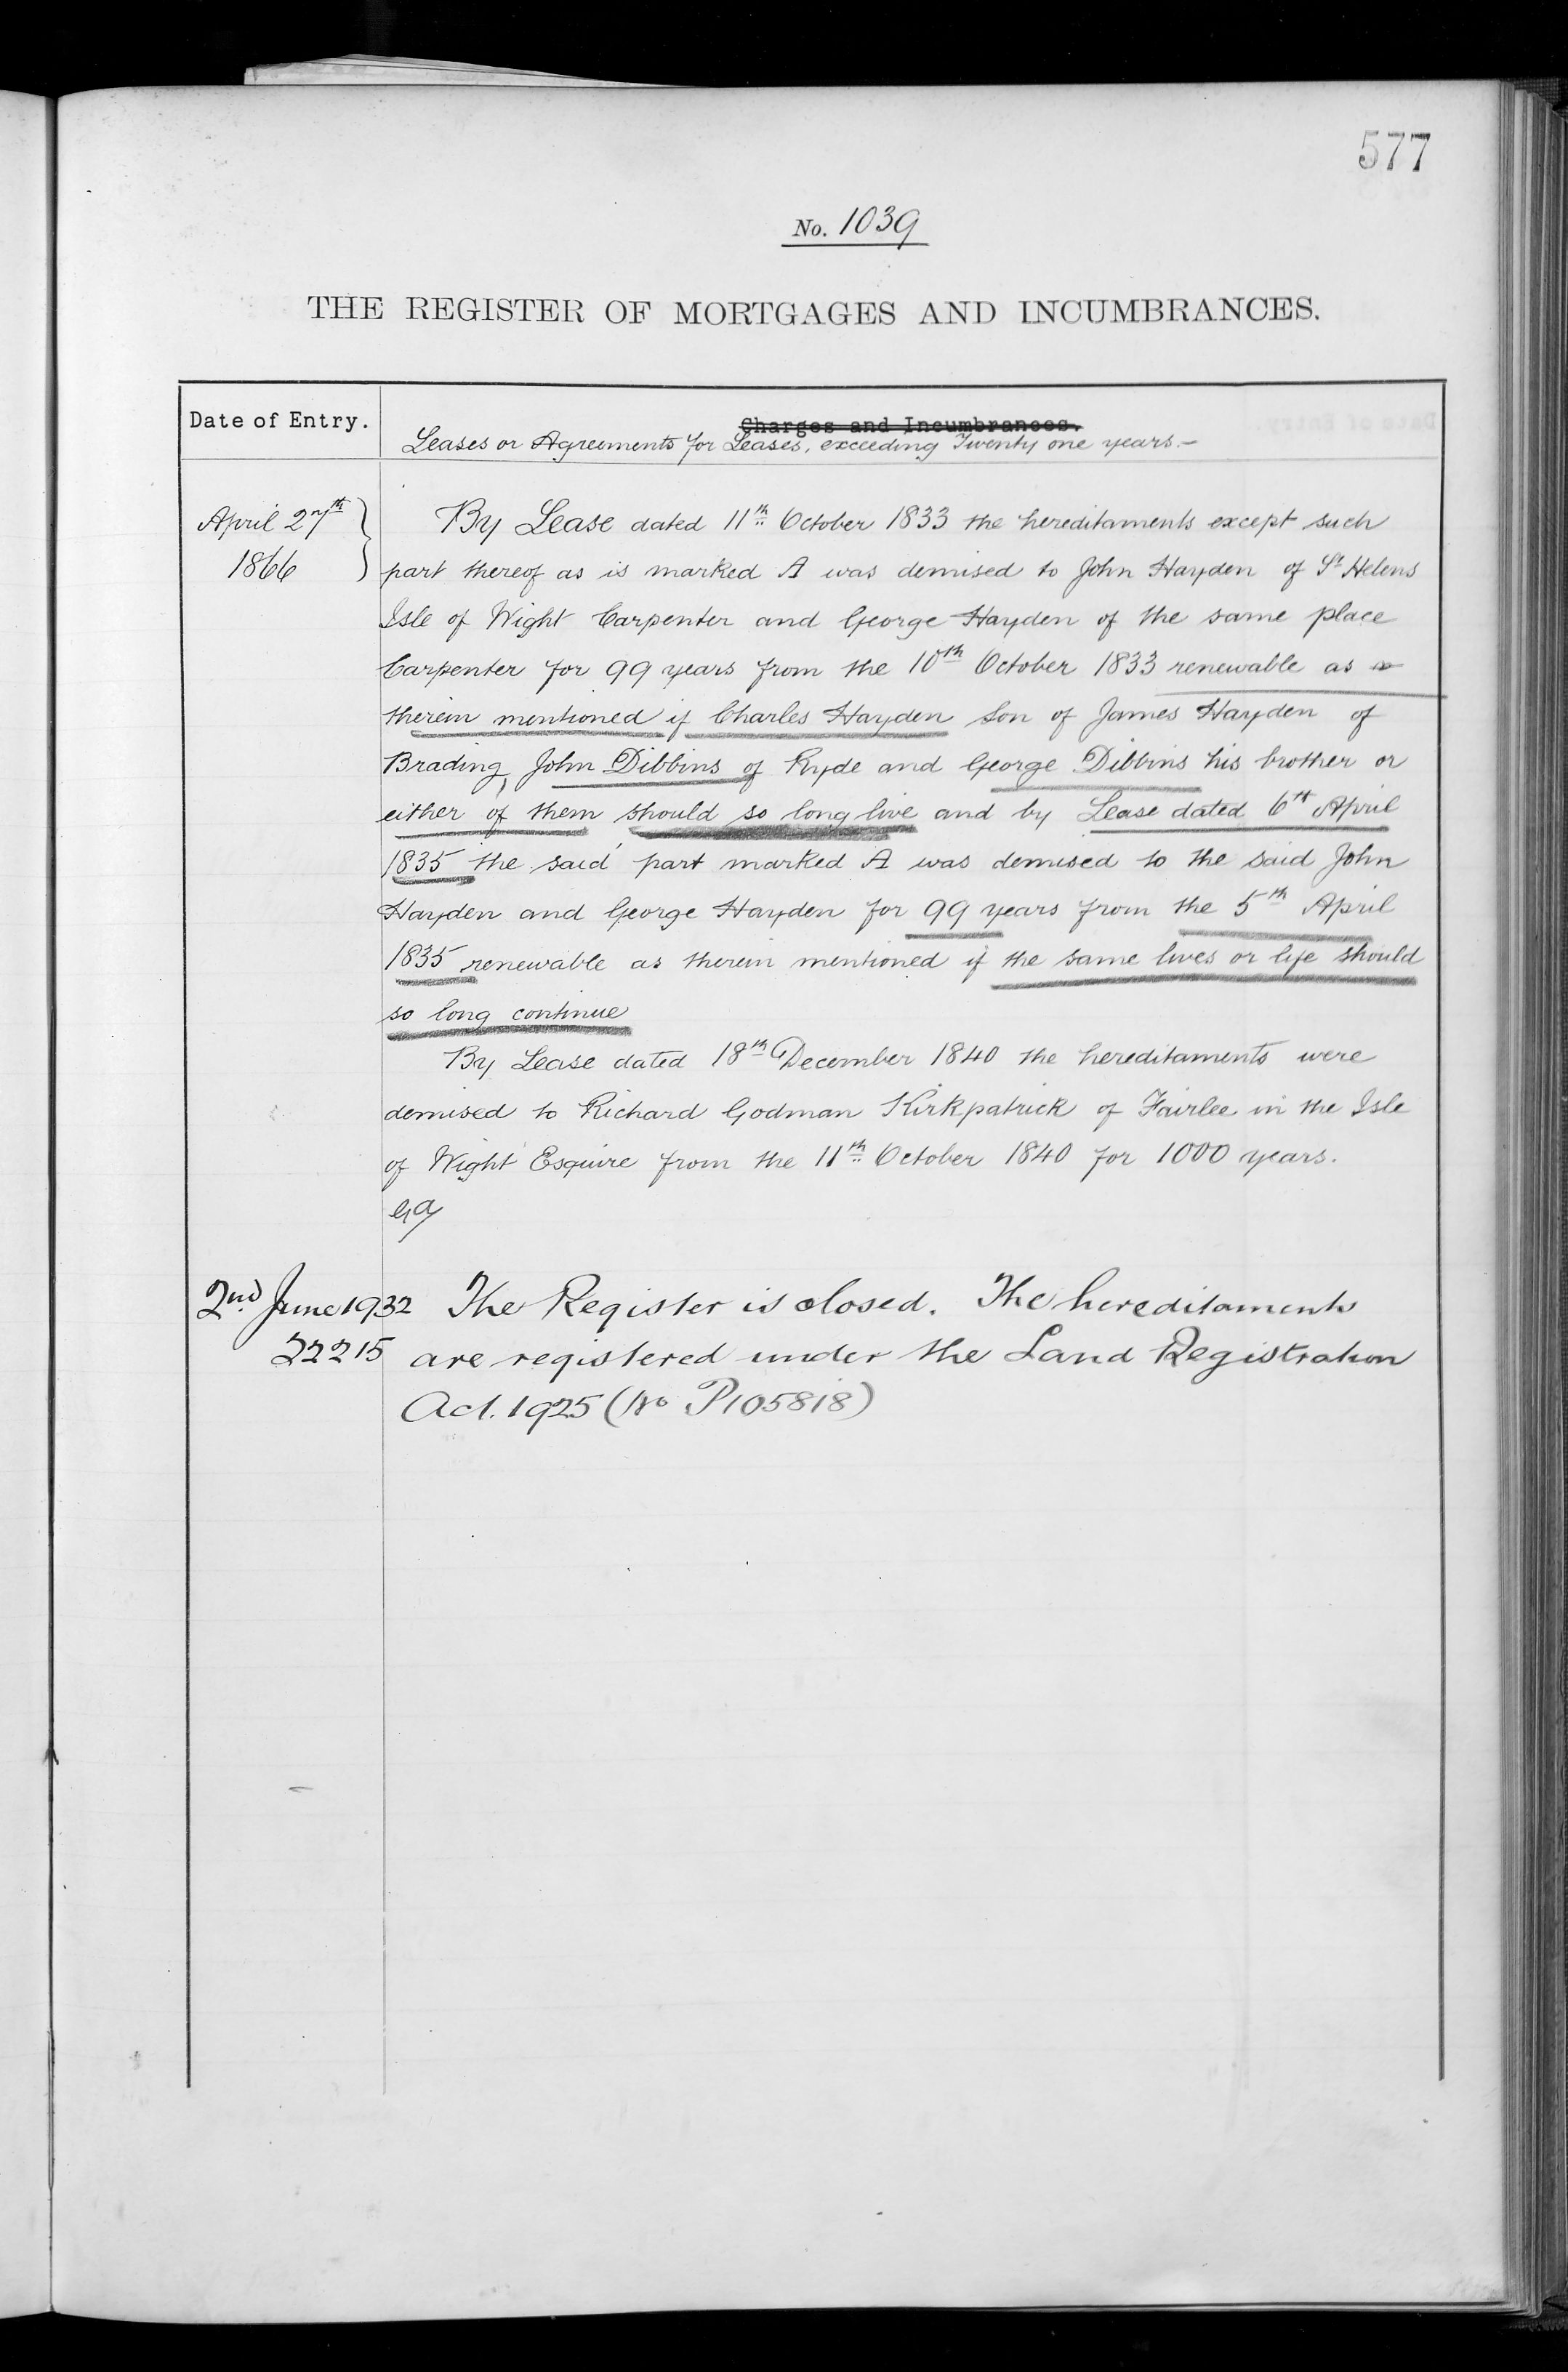 577
No. 1039
THE REGISTER OF MORTGAGES AND INCUMBRANCES.
Date of Entry.
Charges and Incumbrances.
Leases or Agreements for Leases, exceeding Twenty one years.—
April 27th
1866
By Lease dated 11th October 1833 the hereditaments except such
part thereof as is marked A was demised to John Hayden of St Helens
Isle of Wight Carpenter and George Hayden of the same place
Carpenter for 99 years from the 10th October 1833 renewable as
therein mentioned if Charles Hayden Son of James Hayden of
Brading, John Dibbins of Ryde and George Dibbins his brother or
either of them should so long live and by Lease dated 6th April
1835 the said part marked A was demised to the said John
Hayden and George Hayden for 99 years from the 5th April
1835 renewable as therein mentioned if the same lives or life should
so long continue
By Lease dated 18th December 1840 the hereditaments were
demised to Richard Godman Kirkpatrick of Fairlee in the Isle
of Wight Esquire from the 11th October 1840 for 1000 years.
2nd June 1932
22215
The Register is closed. The hereditaments
are registered under the Land Registration
Act. 1925 (No P105818)